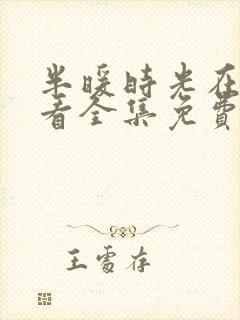 半暖時光在
看全集免費
王雪存